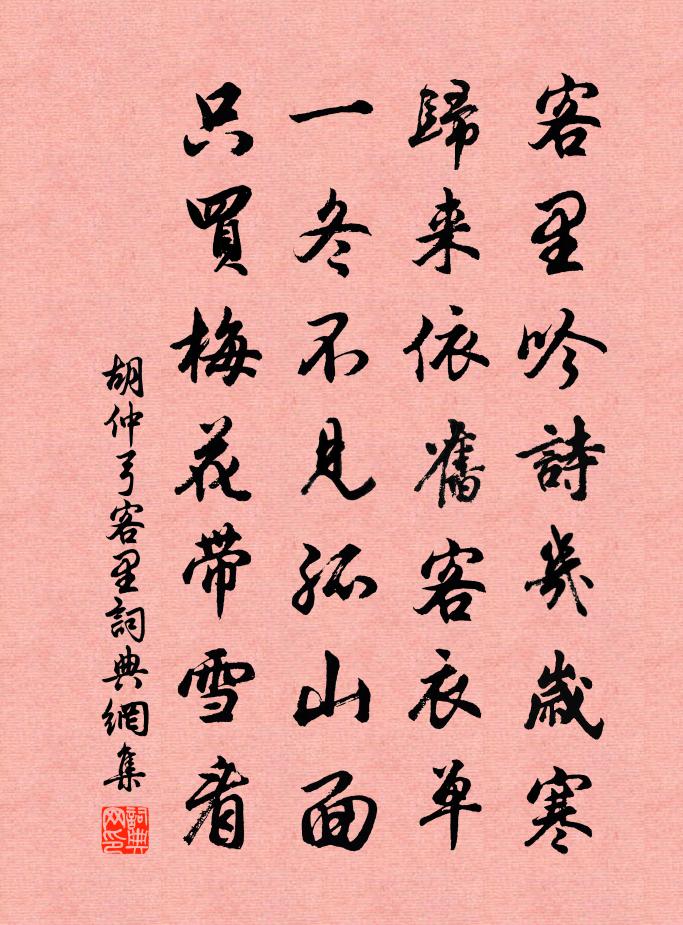 客里吟詩幾歲寒
歸来依舊客衣單
一冬不見孤山面
只買梅花带雪看
胡仲弓客里詞典網集
詞典网印